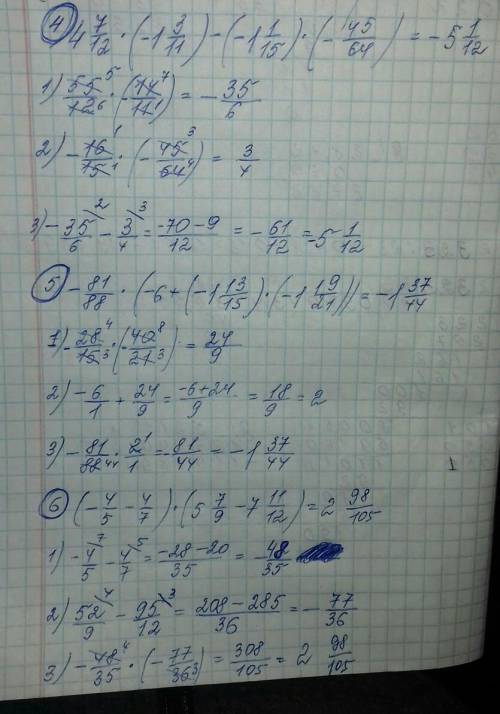 4) 4 7/12 · (-1 3/11) - (-1 1/15) · (-45/64) = -5 1/12
1) 55⁵/12₆ · (-14⁷/11₁) = -35/6
2) -16¹/15₁ · (-45³/64₄) = 3/4
3) -35/6 /2 - 3/4 /3 = -70-9/12 = -61/12 = -5 1/12
5) -81/88 · (-6+(-1 13/15) · (-1 19/21)) = -1 37/44
1) -28⁴/15₃ · (-40⁸/21₃) = 24/9
2) -6/1 + 24/9 = -6+24/9 = 18/9 = 2
3) -81/88₄₄ · 2¹/1 = -81/44 = -1 37/44
6) (-4/5 - 4/7) · (5 7/9 - 7 11/12) = 2 98/105
1) -4/5 /7 - 4/7 /5 = -28-20/35 = 48/35
2) 52/9 /4 - 95/12 /3 = 208-285/36 = -77/36
3) -48⁴/35 · (-77/36₃) = 308/105 = 2 98/105